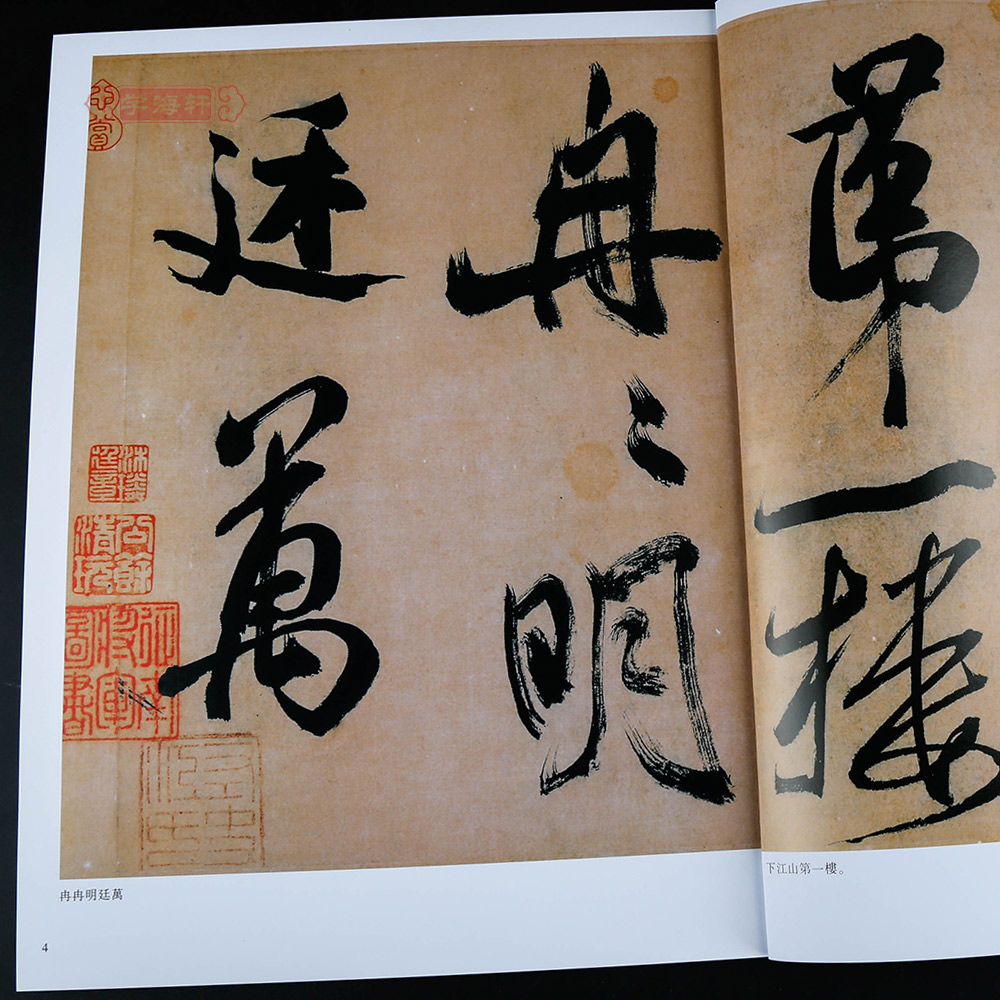 第一樓
冉〻明
廷萬
下江山第一樓。
冉冉明廷萬
4
学海轩